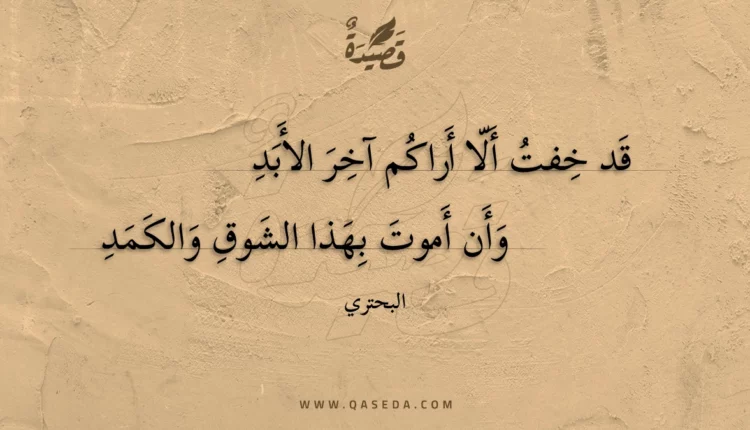 قَصِيْدَةٌ
قَد خِفتُ أَلّا أَراكُم آخِرَ الأَبَدِ
وَأَن أَموتَ بِهَذا الشَوقِ وَالكَمَدِ
البحتري
WWW.QASEDA.COM